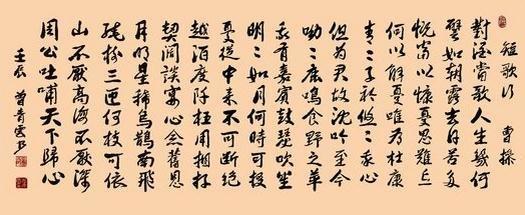 短歌行 曹操
對酒當歌人生幾何
譬如朝露去日苦多
慨當以慷憂思難忘
何以解憂唯有杜康
青々子衿悠々我心
但为君故沈吟至今
呦々鹿鳴食野之苹
我有嘉賓鼓瑟吹笙
明々如月何時可掇
憂從中来不可断絕
越陌度阡枉用相存
契闊談宴心念舊恩
月明星稀烏鵲南飛
繞樹三匝何枝可依
山不厭高海不厭深
周公吐哺天下歸心
壬辰 曾青雲书